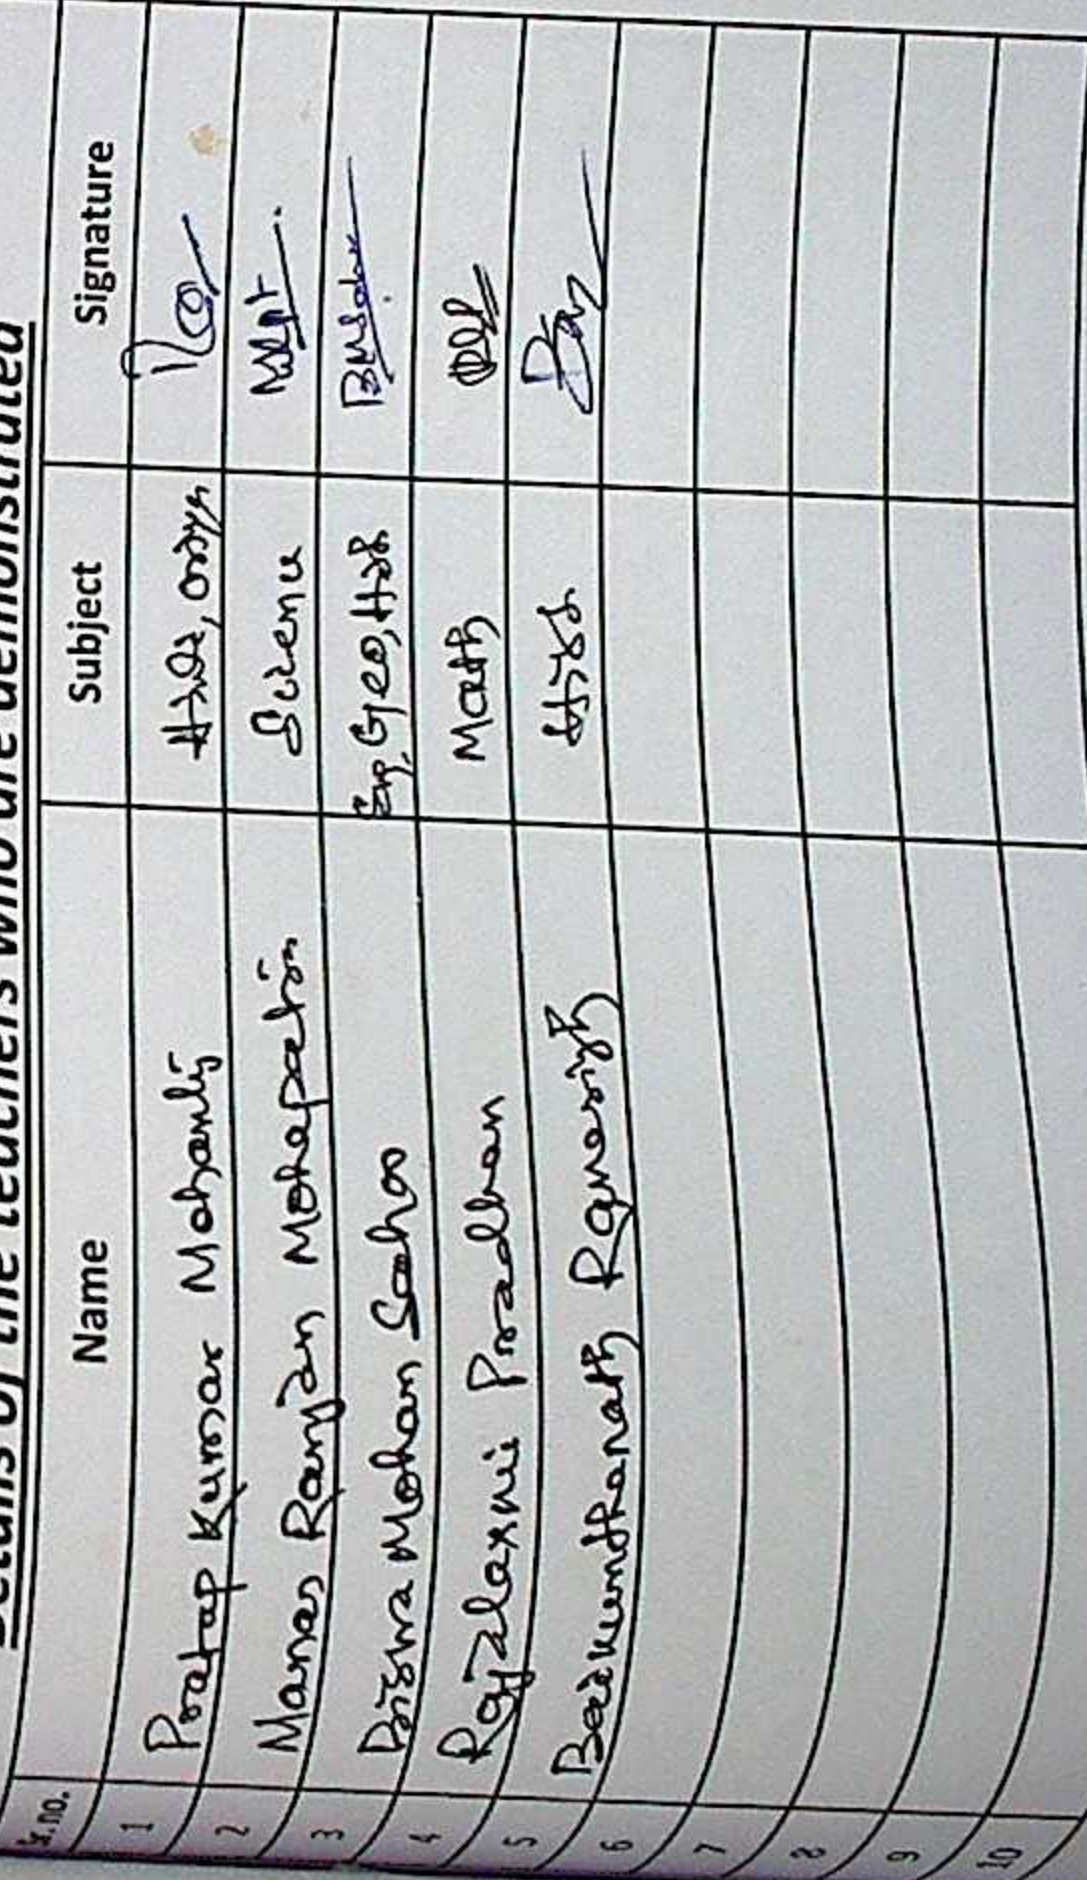 Details of the teachers who are demonstrated
Sr.no. Name Subject Signature
1 Pratap Kumar Mohanty
2 Manas Ranjan Mohapatra Science
3 Mohan Sahoo Eng, Geo, Hist BMSahoo
4 Rajalaxmi Pradhan Math
5 Baikunthanath Ranasingh Hist
6
7
8
9
10